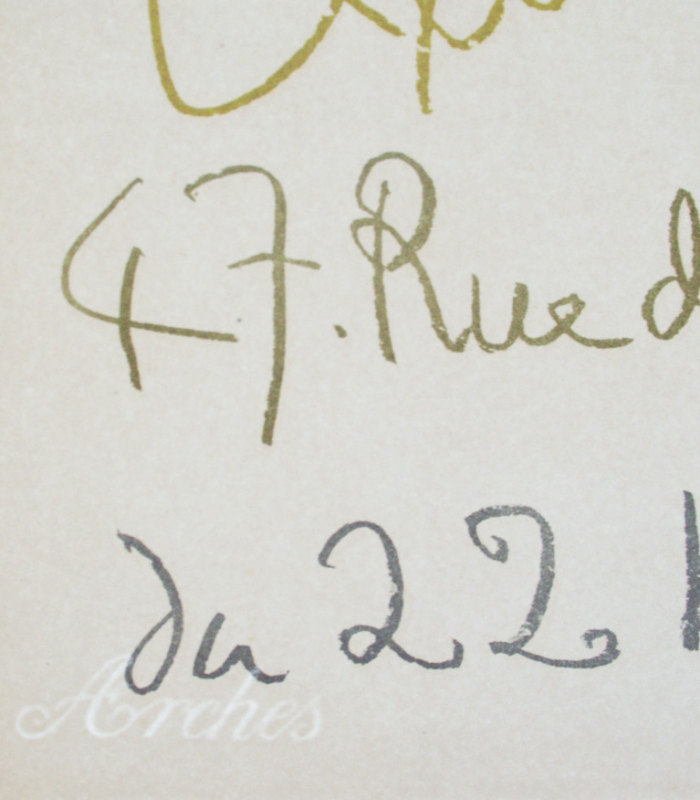 47. Rue d
du 22
Arches